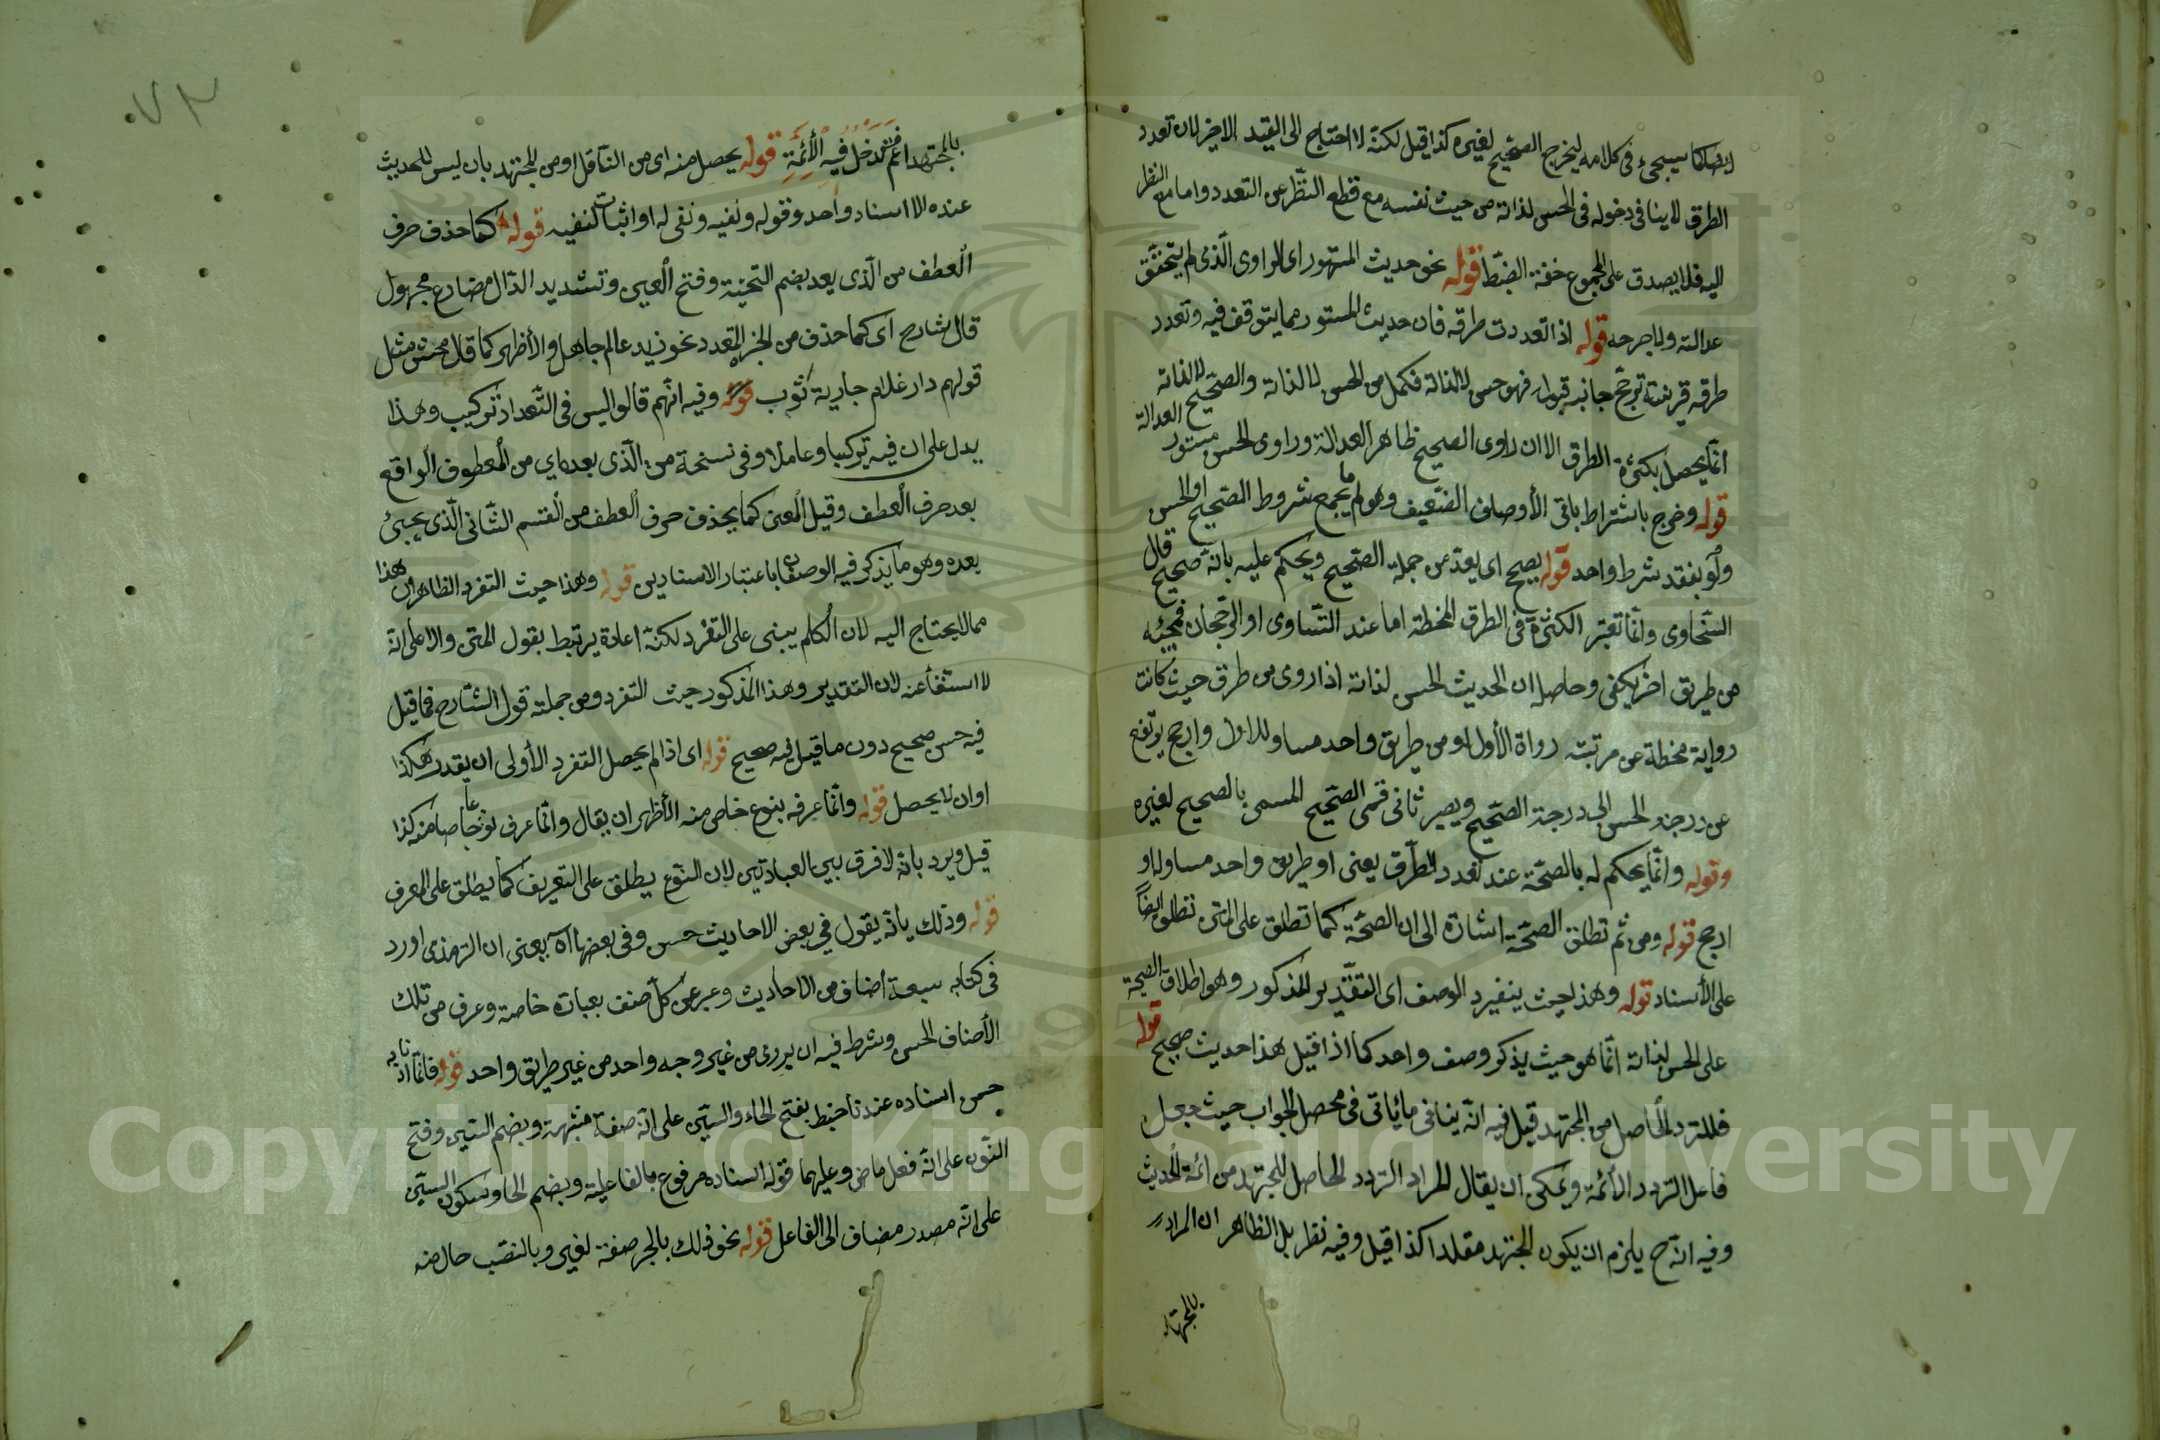 ايضا كما سيجيء في كلامه ليخرج الصحيح لغيره كذا قيل لكنه لا احتاج الى القيد الاخير لان تعدد
الطرق لا ينافي دخوله في الحسن لذاته من حيث نفسه مع قطع النظر عن التعدد واما مع النظر
اليه فلا يصدق على المجموع خفة الضبط قوله نحو حديث المستور اى الراوى الذى لم يتحقق
عدالته ولا جرحه قوله اذا تعددت طرقه فان حديث المستور مما يتوقف فيه وتعدد
طرقه قرينة ترجح جانب قبوله فهو حسن لا لذاته فكمل من الحسن لا لذاته والصحيح لا لذاته
انما يحصل بكثرة الطرق الا ان راوى الصحيح ظاهر العدالة وراوى الحسن مستور العدالة
قوله وخرج باشتراط باقى الأوصاف الضعيف وهو ما لم يجمع شروط الصحيح او الحسن
ولو بفقد شرط واحد قوله يصحح اى يعد من جملة الصحيح ويحكم عليه بانه صحيح قال
السخاوى وانما تعتبر الكثرة فى الطرق المنحطة اما عند التساوى او الرجحان فمجيئه
من طريق اخر يكفى وحاصله ان الحديث الحسن لذاته اذا روى من طرق حيث كانت
رواية منحطة عن مرتبته رواة الأول او من طريق واحد مساو للاول وارجح يرتفع
عن درجة الحسن الى درجة الصحيح ويصير ثانى قسمى الصحيح المسمى بالصحيح لغيره
وقوله وانما يحكم له بالصحة عند تعدد الطرق يعنى او طريق واحد مساو له او
ارجح قوله ومن ثم تطلق الصحة اشارة الى ان الصحة كما تطلق على المتن تطلق ايضا
على الأسناد قوله وهذا حيث ينفرد الوصف اى التقدير المذكور وهو اطلاق الصحة
على الحسن لذاته انما هو حيث يذكر وصف واحد كما اذا قيل هذا حديث صحيح قوله
فللتردد الحاصل من المجتهد قيل فيه انه ينافى ما يأتى فى محصل الجواب حيث جعل
فاعل التردد الأئمة ويمكن ان يقال المراد التردد الحاصل للمجتهد من ائمة الحديث
وفيه انه ح يلزم ان يكون المجتهد مقلدا كذا قيل وفيه نظر بل الظاهر ان المراد
بالمجتهد
٧٣
بالمجتهد اثم فقد دخل فيه الأئمة قوله يحصل منه اى من الناقل او من المجتهد بان ليس للحديث
عنده الا اسناد واحد وقوله ونفيه ونفى له او اثبات لنفيه قوله كما حذف حرف
العطف من الذى يعد بضم التحتية وفتح العين وتشديد الدال مضارع مجهول
قال شارح اى كما حذف من الخبر المتعدد نحو زيد عالم جاهل والأظهر كما قال محشى مثل
قولهم دار غلام جارية ثوب قوله وفيه انهم قالوا ليس فى التعداد تركيب وهذا
يدل على ان فيه تركيبا وعاملا وفى نسخة من الذى بعده اي من المعطوف الواقع
بعد حرف العطف وقيل المعنى كما يحذف حرف العطف من القسم الثانى الذى يجيئ
بعده وهو ما يذكر فيه الوصفان باعتبار الاسنادين قوله وهذا حيث التفرد الظاهر ان هذا
مما لا يحتاج اليه لان الكلام يبنى على التفرد لكنه اعاده يرتبط بقول المتن والا على انه
لا استغنأ عنه لان التقدير وهذا المذكور حيث التفرد ومن جملته قول الشارح فما قيل
فيه حسن صحيح دون ما قيل فيه صحيح قوله اى اذا لم يحصل التفرد الأولى ان يقدر هكذا
او ان لا يحصل قوله وانما عرفه بنوع خاص منه الأظهر ان يقال وانما عرف نوعا خاصا منه كذا
قيل ويرد بانه لا فرق بين العبارتين لان النوع يطلق على التعريف كما يطلق على المعرف
قوله وذلك بانه يقول في بعض الاحاديث حسن وفى بعضها اه يعنى ان الترمذى اورد
فى كتابه سبعة أصناف من الاحاديث وعبر عن كل صنف بعبارة خاصة وعرف من تلك
الأصناف الحسن وشرط فيه ان يروى من غير وجه واحد من غير طريق واحد قوله فانما اردنا به
حسن اسناده عندنا ضبط بفتح الحاء والسين على انه صفة مشبهة وبضم السين وفتح
النون على انه فعل ماض وعليهما قوله اسناده مرفوع بالفاعلية وبضم الحاء وسكون السين
على انه مصدر مضاف الى الفاعل قوله نحو ذلك بالجر صفة لغير وبالنصب حال منه
Copyright © King Saud University
1957